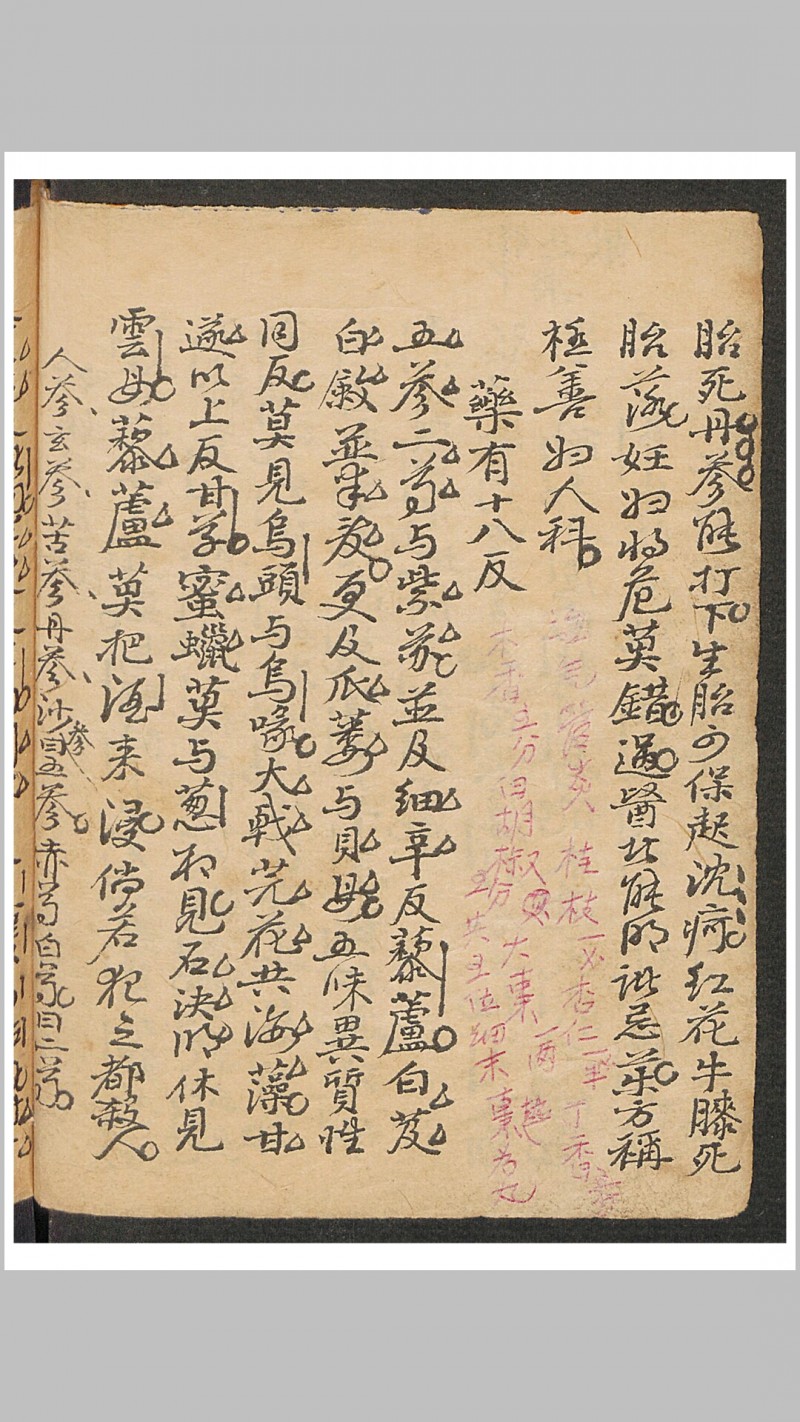 胎死丹參能打下生胎可保起沈疴紅花牛膝死
胎落妊妇将危莫錯過醫者能明訛忌药方稱
極善妇人科
藥有十八反
五參二芍与紫苏並及細辛反藜蘆白芨
白蘞並半夏更及瓜蒌与貝母五味異質性
同反莫見烏頭与烏喙大戟芫花共海藻甘
遂以上反甘草蜜蠟莫与葱相見石決明休見
雲母藜蘆莫把酒来浸倘若犯之都殺人
人參玄參苦參丹參沙參曰五參赤芍白芍曰二芍
桂枝一 杏仁一 丁香
木香五分 白胡椒 大棗一両
共五位細末棗为